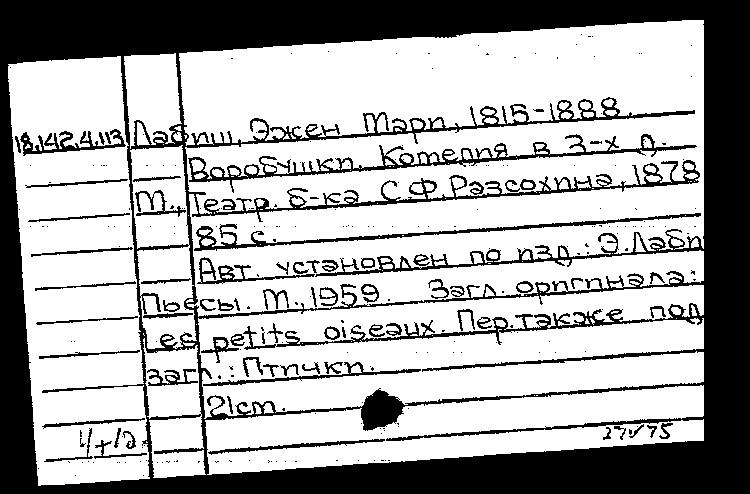 18.142.4.113 Лабиш, Эжен Мари, 1815-1888.
Воробушки. Комедия в 3-х д.
М., Театр. б-ка С.Ф.Рассохина, 1878
85 с.
Авт. установлен по изд.: Э.Лаби
Пьесы. М., 1959. Загл. оригинала:
Les petits oiseaux. Пер.также под
загл.: Птички.
21cm.
27 V 75